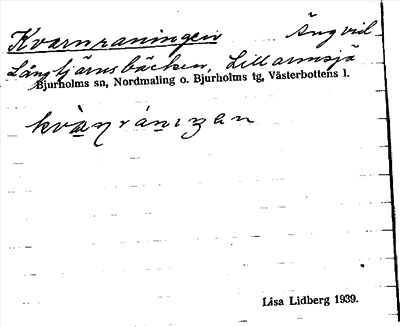 Kvarnraningen Äng vid
Långtjärnsbäcken, Lillarmsjö
Bjurholms sn, Nordmaling o. Bjurholms tg, Västerbottens l.
Lisa Lidberg 1939.